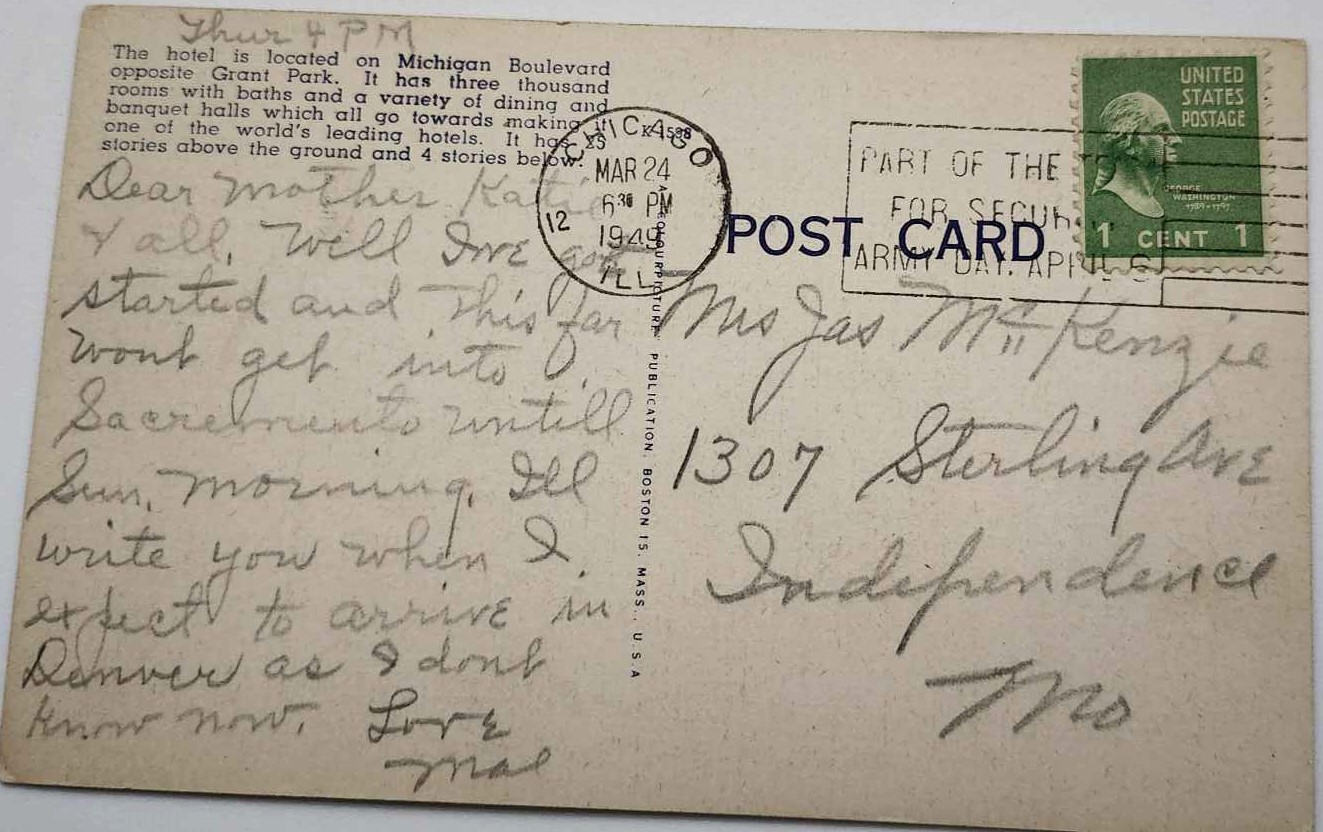 Thur 4 PM
The hotel is located on Michigan Boulevard
opposite Grant Park. It has three thousand
rooms with baths and a variety of dining and
banquet halls which all go towards making it
one of the world's leading hotels. It has 25
stories above the ground and 4 stories below.
Dear Mother Katie
& all. Well I've got
started and this far
wont get into
Sacremento untill
Sun. morning. Ill
write you when I
expect to arrive in
Denver as I dont
know now. Love
Mae
CHICAGO
MAR 24
6 30 PM
12 1949
ILL.
COLOURPICTURE PUBLICATION, BOSTON 15, MASS., U.S.A
POST CARD
PART OF THE
FOR
ARMY DAY, APRIL 6
UNITED
STATES
POSTAGE
GEORGE
WASHINGTON
1789-1797
1 CENT 1
Mrs Jas McKenzie
1307 Sterling Ave
Independence
Mo